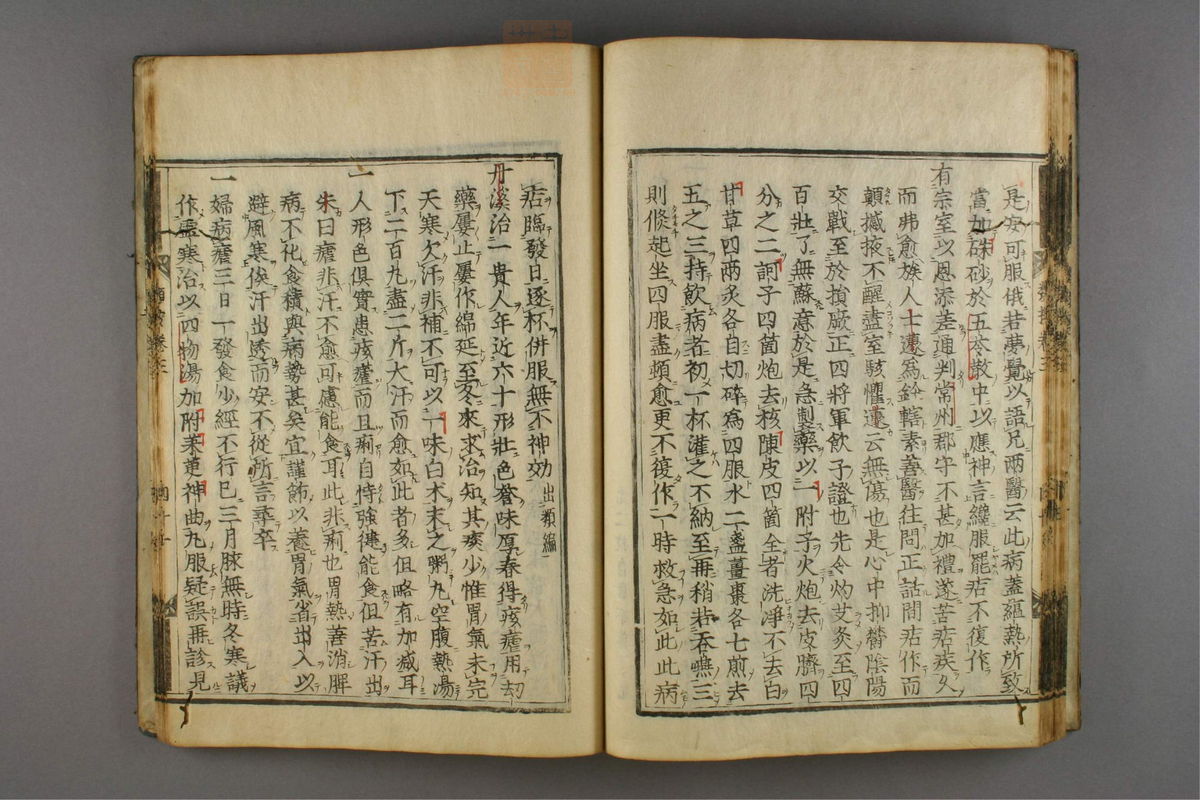 是安可服俄若夢覺以語兄兩醫云此病蓋蘊熱所致
當加硃砂於五苓散中以應神言纔服罷痁不復作
有宗室以恩添差通判常州郡守不甚加禮遂苦痁疾久
而弗愈族人士躔爲鈐轄素善醫往問正話間痁作而
顛撼掖不醒盡室駭懼躔云無傷也是心中抑鬱陰陽
交戰至於損厥正四將軍飲子證也先令灼艾灸至四
百壯了無蘇意於是急製藥以一附子火炮去皮臍四
分之二訶子四箇炮去核陳皮四箇全者洗淨不去白
甘草四兩炙各自切碎爲四服水二盞薑棗各七煎去
五之三持飲病者初一杯灌之不納至再稍若吞嚥三
則倏起坐四服盡頓愈更不復作一時救急如此此病
痁臨發日逐杯併服無不神効 出類編
丹溪治一貴人年近六十形壯色蒼味厚春得痎瘧用刧
藥屢止屢作綿延至冬來求治知其痰少惟胃氣未完
天寒欠汗非補不可以一味白朮末之粥丸空腹熱湯
下二百丸盡二斤大汗而愈如此者多但略有加減耳
一人形色俱實患痎瘧而且痢自恃強健能食但苦汗出
朱曰瘧非汗不愈可慮能食耳此非痢也胃熱善消脾
病不化食積與病勢甚矣宜謹飾以養胃氣省出入以
避風寒俟汗出透而安不從所言尋卒
一婦病瘧三日一發食少經不行已三月脉無時冬寒議
作虛寒治以四物湯加附茱萸神曲丸服疑誤再診見